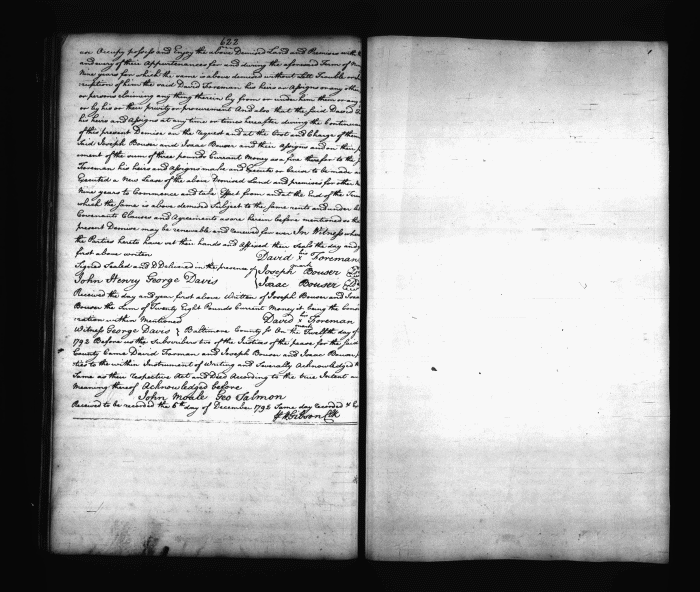 622
use Occupy possess and Enjoy the above Demised Land and Premises with
and every of their Appurtenances for and during the aforesaid Term of
Nine years for which the same is above demised without Lett Trouble
of him the said David Foreman his heirs or Assigns or any other
or persons claiming any thing therein by from or under him them or any
or by his or their privity or procurement And also that the said David
his heirs and Assigns at any time or times hereafter during the Continuance
of this present Demise on the request and at the Cost and Charge of them
Said Joseph Bouser and Isaac Bouser and their Assigns and on their
of the sum of three pounds Current Money as a fine therefor to the
Foreman his heirs and Assigns make and Execute or Cause to be made
Executed a New Lease of the above Demised Land and premises for other
Nine years to Commence and take Effect from and at the End of the Term
which the same is above demised Subject to the same rents and under
Covenants Clauses and Agreements as are herein before mentioned so
present Demise may be renewable and renewed for ever In Witness
the Parties hereto have set their hands and affixed their Seals the day and
first above written David his x mark Foreman
Signed Sealed and Delivered in the presence of Joseph Bouser
John Henry George Davis Isaac Bouser
Received the day and year first above Written of Joseph Bouser and
Bouser the Sum of Twenty Eight Pounds Current Money it being the
within Mentioned David his x mark Foreman
Witness George Davis } Baltimore County So On the Twelfth day of
1792 Before us the Subscribers two of the Justices of the peace for the said
County Came David Forman and Joseph Bouser and Isaac Bouser
to the within Instrument of Writing and Severally Acknowledged
Same as their respective Act and Deed According to the true Intent
Meaning thereof Acknowledged before
John Moale Geo Salmon
Received to be recorded the 6th day of December 1792 Same day recorded &
Gibson Clk